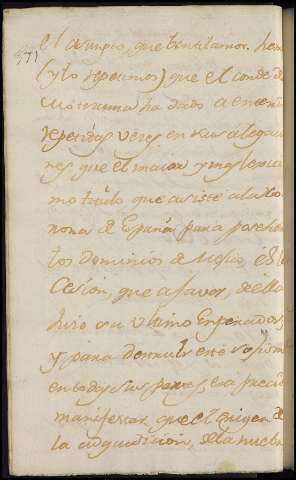 571
el asumpto, que ventilamos. hemos
(y lo repetimos) que el conde de
Motezuma ha dado a entender
repetidas veces en sus alegacio
nes que el maior y mas legiti
mo titulo que asiste a la Co
rona de España para poseher
los dominios de Mexico, es la
Cesion, que a favor, de ella
hizo su ultimo Emperador,
y para demolir este sofisma
en todas sus partes, era preciso
manifestar que el origen de
la adquisicion, de la nueba